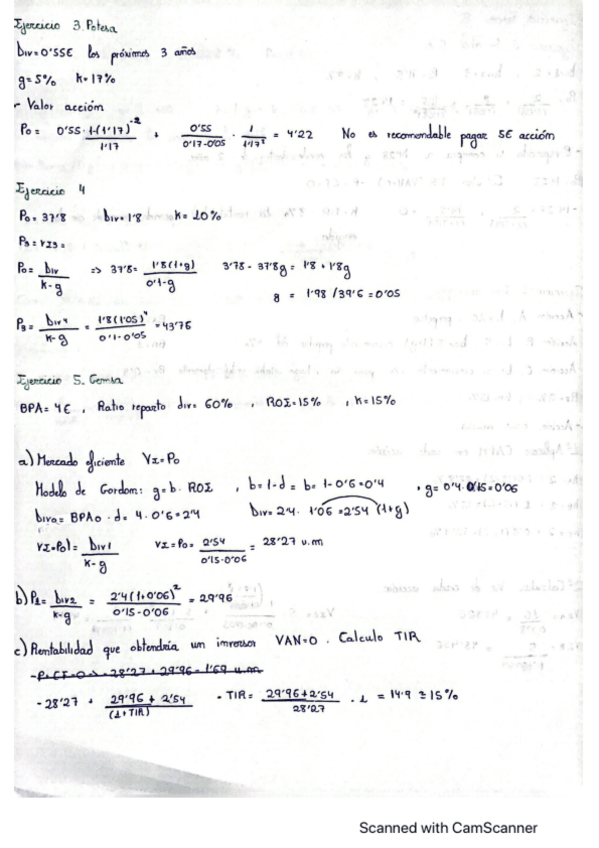 Ejercicio 3. Potesa
Div=0'55€ los próximos 3 años
g=5% k=17%
- Valor acción
P0= 0'55· 1-(1'17)^-2 / 1'17 + 0'55 / 0'17-0'05 · 1 / 1'17² = 4'22 No es recomendable pagar 5€ acción
Ejercicio 4
P0= 37'8 Div=1'8 k=10%
P3=VI3=
P0= Div / k-g => 37'8= 1'8(1+g) / 0'1-g 3'78-37'8g = 1'8+1'8g
g = 1'98 /39'6 =0'05
P3= Div4 / k-g = 1'8(1'05)^4 / 0'1-0'05 =43'76
Ejercicio 5. Gemsa
BPA=4€, Ratio reparto div=60%, ROE=15%, k=15%
a) Mercado eficiente VI=P0
Modelo de Gordom: g=b·ROE, b=1-d = b= 1-0'6=0'4, g=0'4·0'15=0'06
Div0= BPA0·d= 4·0'6=2'4 Div=2'4·1'06=2'54 (1+g)
VI=P01= Div1 / k-g VI=P0= 2'54 / 0'15-0'06 = 28'27 u.m
b) P1= Div2 / k-g = 2'4(1+0'06)² / 0'15-0'06 = 29'96
c) Rentabilidad que obtendría un inversor VAN=0. Calculo TIR
-28'27+29'96=1'69 u.m
-28'27 + 29'96+2'54 / (1+TIR) - TIR= 29'96+2'54 / 28'27 -1 = 14'9 ≅15%
Scanned with CamScanner